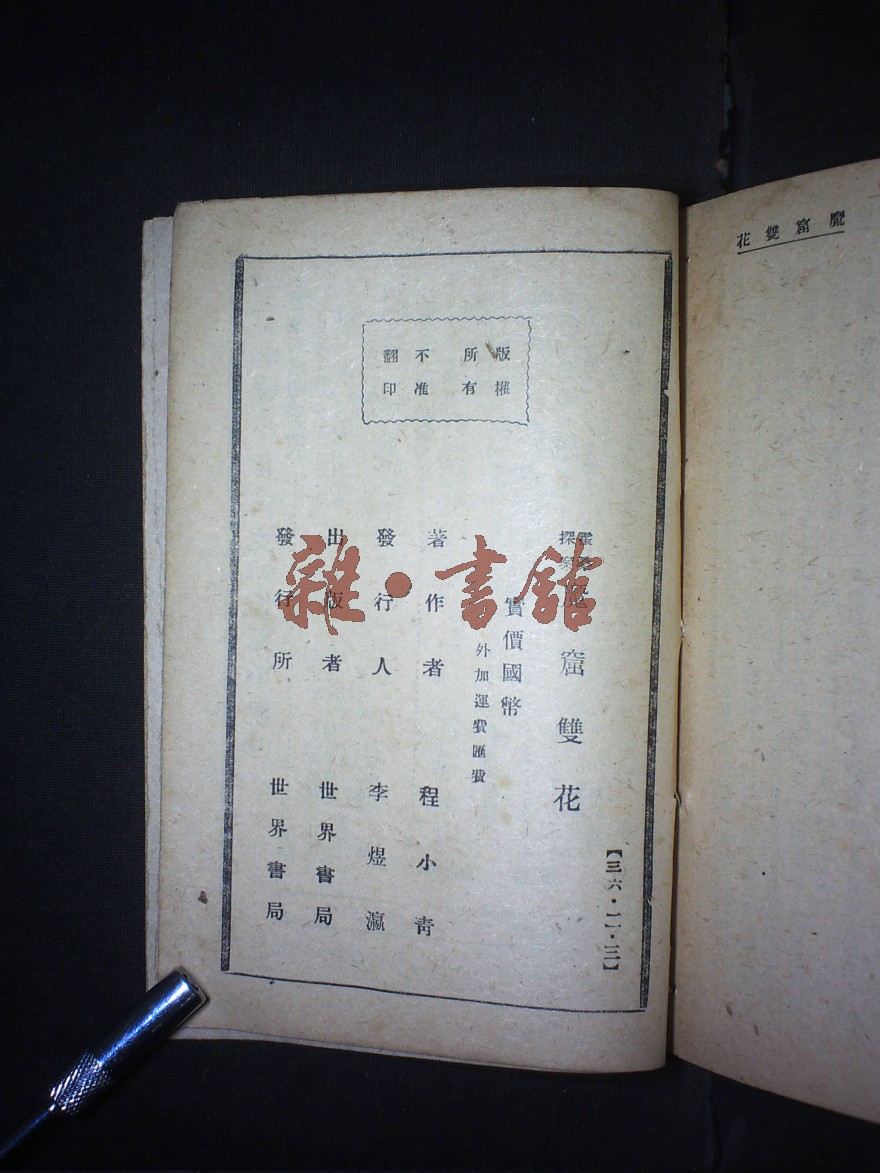 魔窟雙花
版權
所有
不准
翻印
【三六・一一・三】
霍桑
探案
魔窟雙花
實價國幣
外加運費匯費
著作者 程小青
發行人 李煜瀛
出版者 世界書局
發行所 世界書局
雜・書館